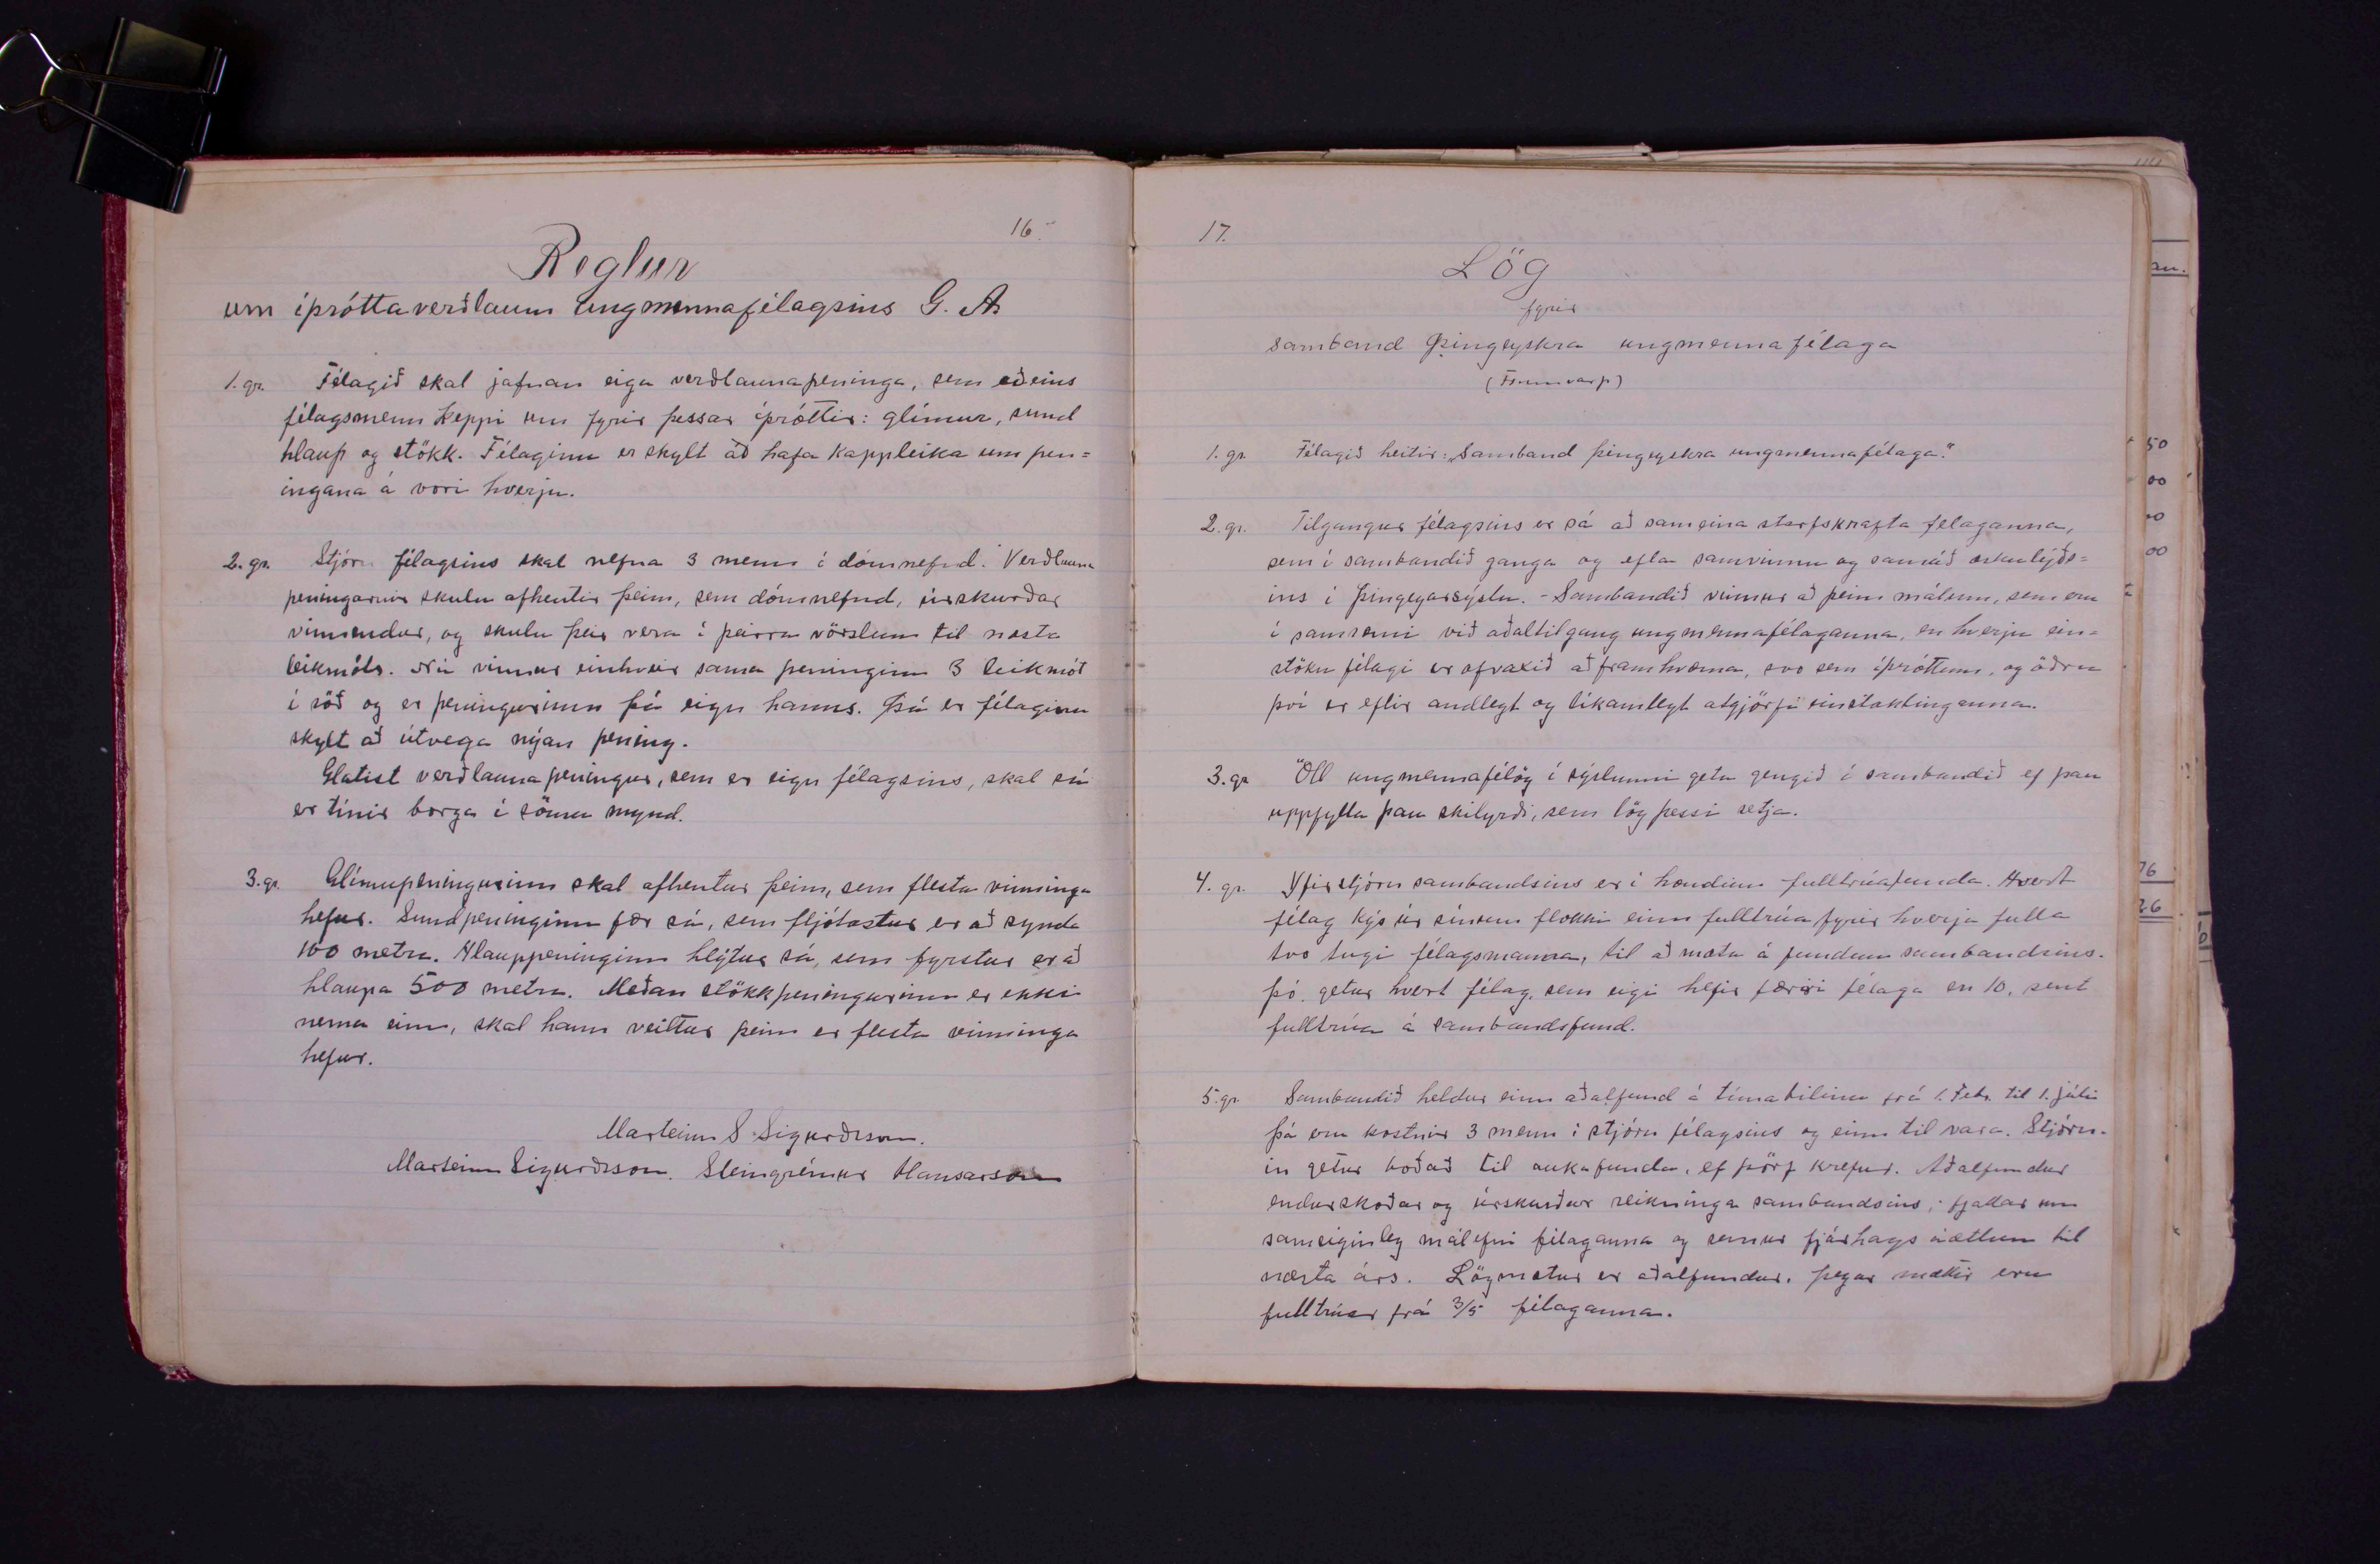 16.
Reglur
um íþróttaverðlaun ungmennafélagsins G. A.
1. gr. Félagið skal jafnan eiga verðlaunapeninga, sem aðeins
félagsmenn keppi um fyrir þessar íþróttir: glímur, sund
hlaup og stökk. Félaginu er skylt að hafa kappleika um pen=
ingana á vori hverju.
2. gr. Stjórn félagsins skal nefna 3 menn í dómnefnd. Verðlauna
peningarnir skulu afhentir þeim, sem dómnefnd, úrskurðar
vinnendur, og skulu þeir vera í þeirra vörslum til næsta
leikmóts. Nú vinnur einhver sama peninginn 3 leikmót
í röð og er peningurinn þá eign hanns. Þá er félaginu
skylt að útvega nýjan pening.
Glatist verðlaunapeningur, sem er eign félagsins, skal sá
er tínir borga í sömu mynd.
3. gr. Glímupeningurinn skal afhentur þeim, sem flesta vinninga
hefur. Sundpeninginn fær sá, sem fljótastur er að synda
100 metra. Hlauppeninginn hlýtur sá, sem fyrstur er að
hlaupa 500 metra. Meðan stökkpeningurinn er ekki
nema einn, skal hann veittur þeim er flesta vinninga
hefur.
Marteinn S Sigurðsson.
Marteinn Sigurðsson. Steingrímur Hansarson
17.
Lög
fyrir
Samband Þingeyskra ungmennafélaga
(Frumvarp)
1. gr. Félagið heitir: „Samband þingeyskra ungmennafélaga."
2. gr. Tilgangur félagsins er sá að sameina starfskrafta félaganna,
sem í sambandið ganga og efla samvinnu og samúð æskulýðs=
ins í Þingeyarsýslu. - Sambandið vinnur að þeim málum, sem eru
í samræmi við aðaltilgang ungmennafélaganna, en hverju ein=
stöku félagi er ofvaxið að framkvæma, svo sem íþróttum, og öðru
því er eflir andlegt og líkamlegt atgjörfi einstaklinganna.
3. gr Öll ungmennafélög í sýslunni geta gengið í sambandið ef þau
uppfylla þau skilyrði, sem lög þessi setja.
4. gr. Yfirstjórn sambandsins er í höndum fulltrúafunda. Hvert
félag kýs úr sínum flokki einn fulltrúa fyrir hverja fulla
tvo tugi félagsmanna, til að mæta á fundum sambandsins.
Þó getur hvert félag, sem eigi hefir færri félaga en 10, sent
fulltrúa á sambandsfund.
5. gr. Sambandið heldur einn aðalfund á tímabilinu frá 1. Febr. til 1. júlí
Þá eru kostnir 3 menn í stjórn félagsins og einn til vara. Stjórn-
in getur boðað til aukafunda, ef þörf krefur. Aðalfundur
endurskoðar og úrskurðar reikninga sambandsins; fjallar um
sameiginleg málefni félaganna og semur fjárhags áætlun til
næsta árs. Lögmætur er aðalfundur, þegar mættir eru
fulltrúar frá 3/5 félaganna.